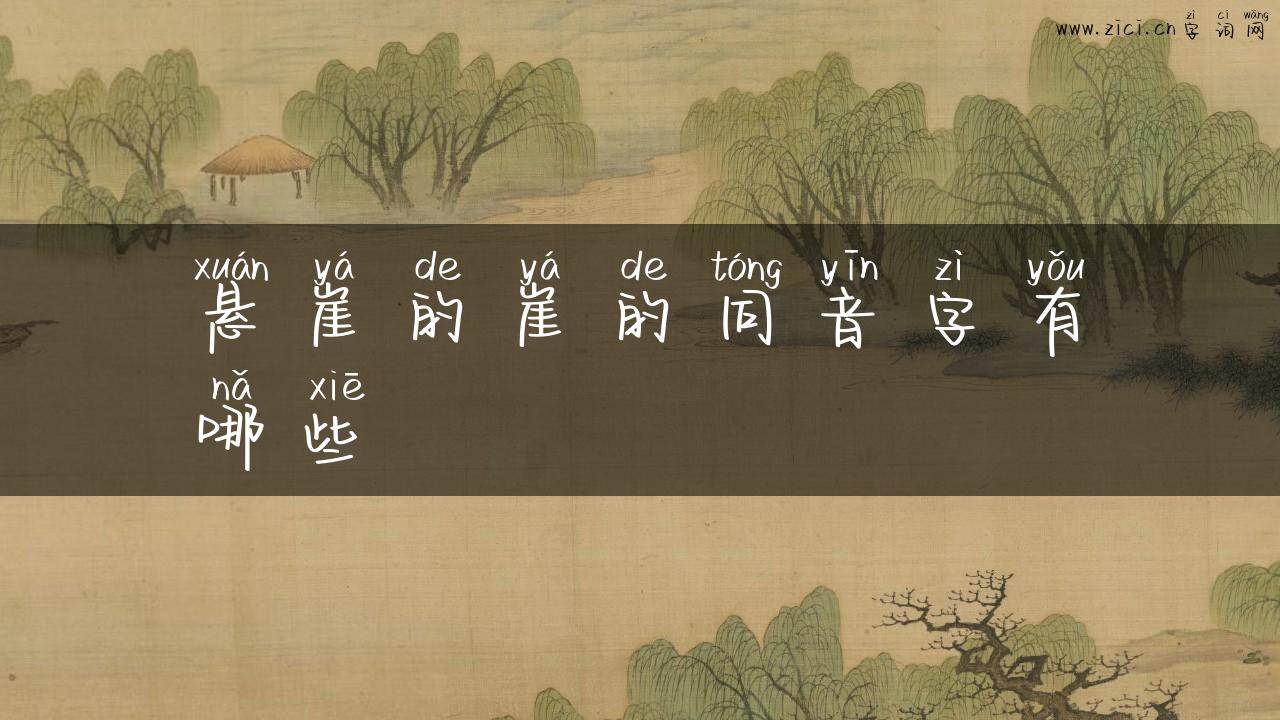 zì cí wǎng
www.zici.cn 字 词 网
xuán yá de yá de tóng yīn zì yǒu
悬 崖 的 崖 的 同 音 字 有
nǎ xiē
哪 些